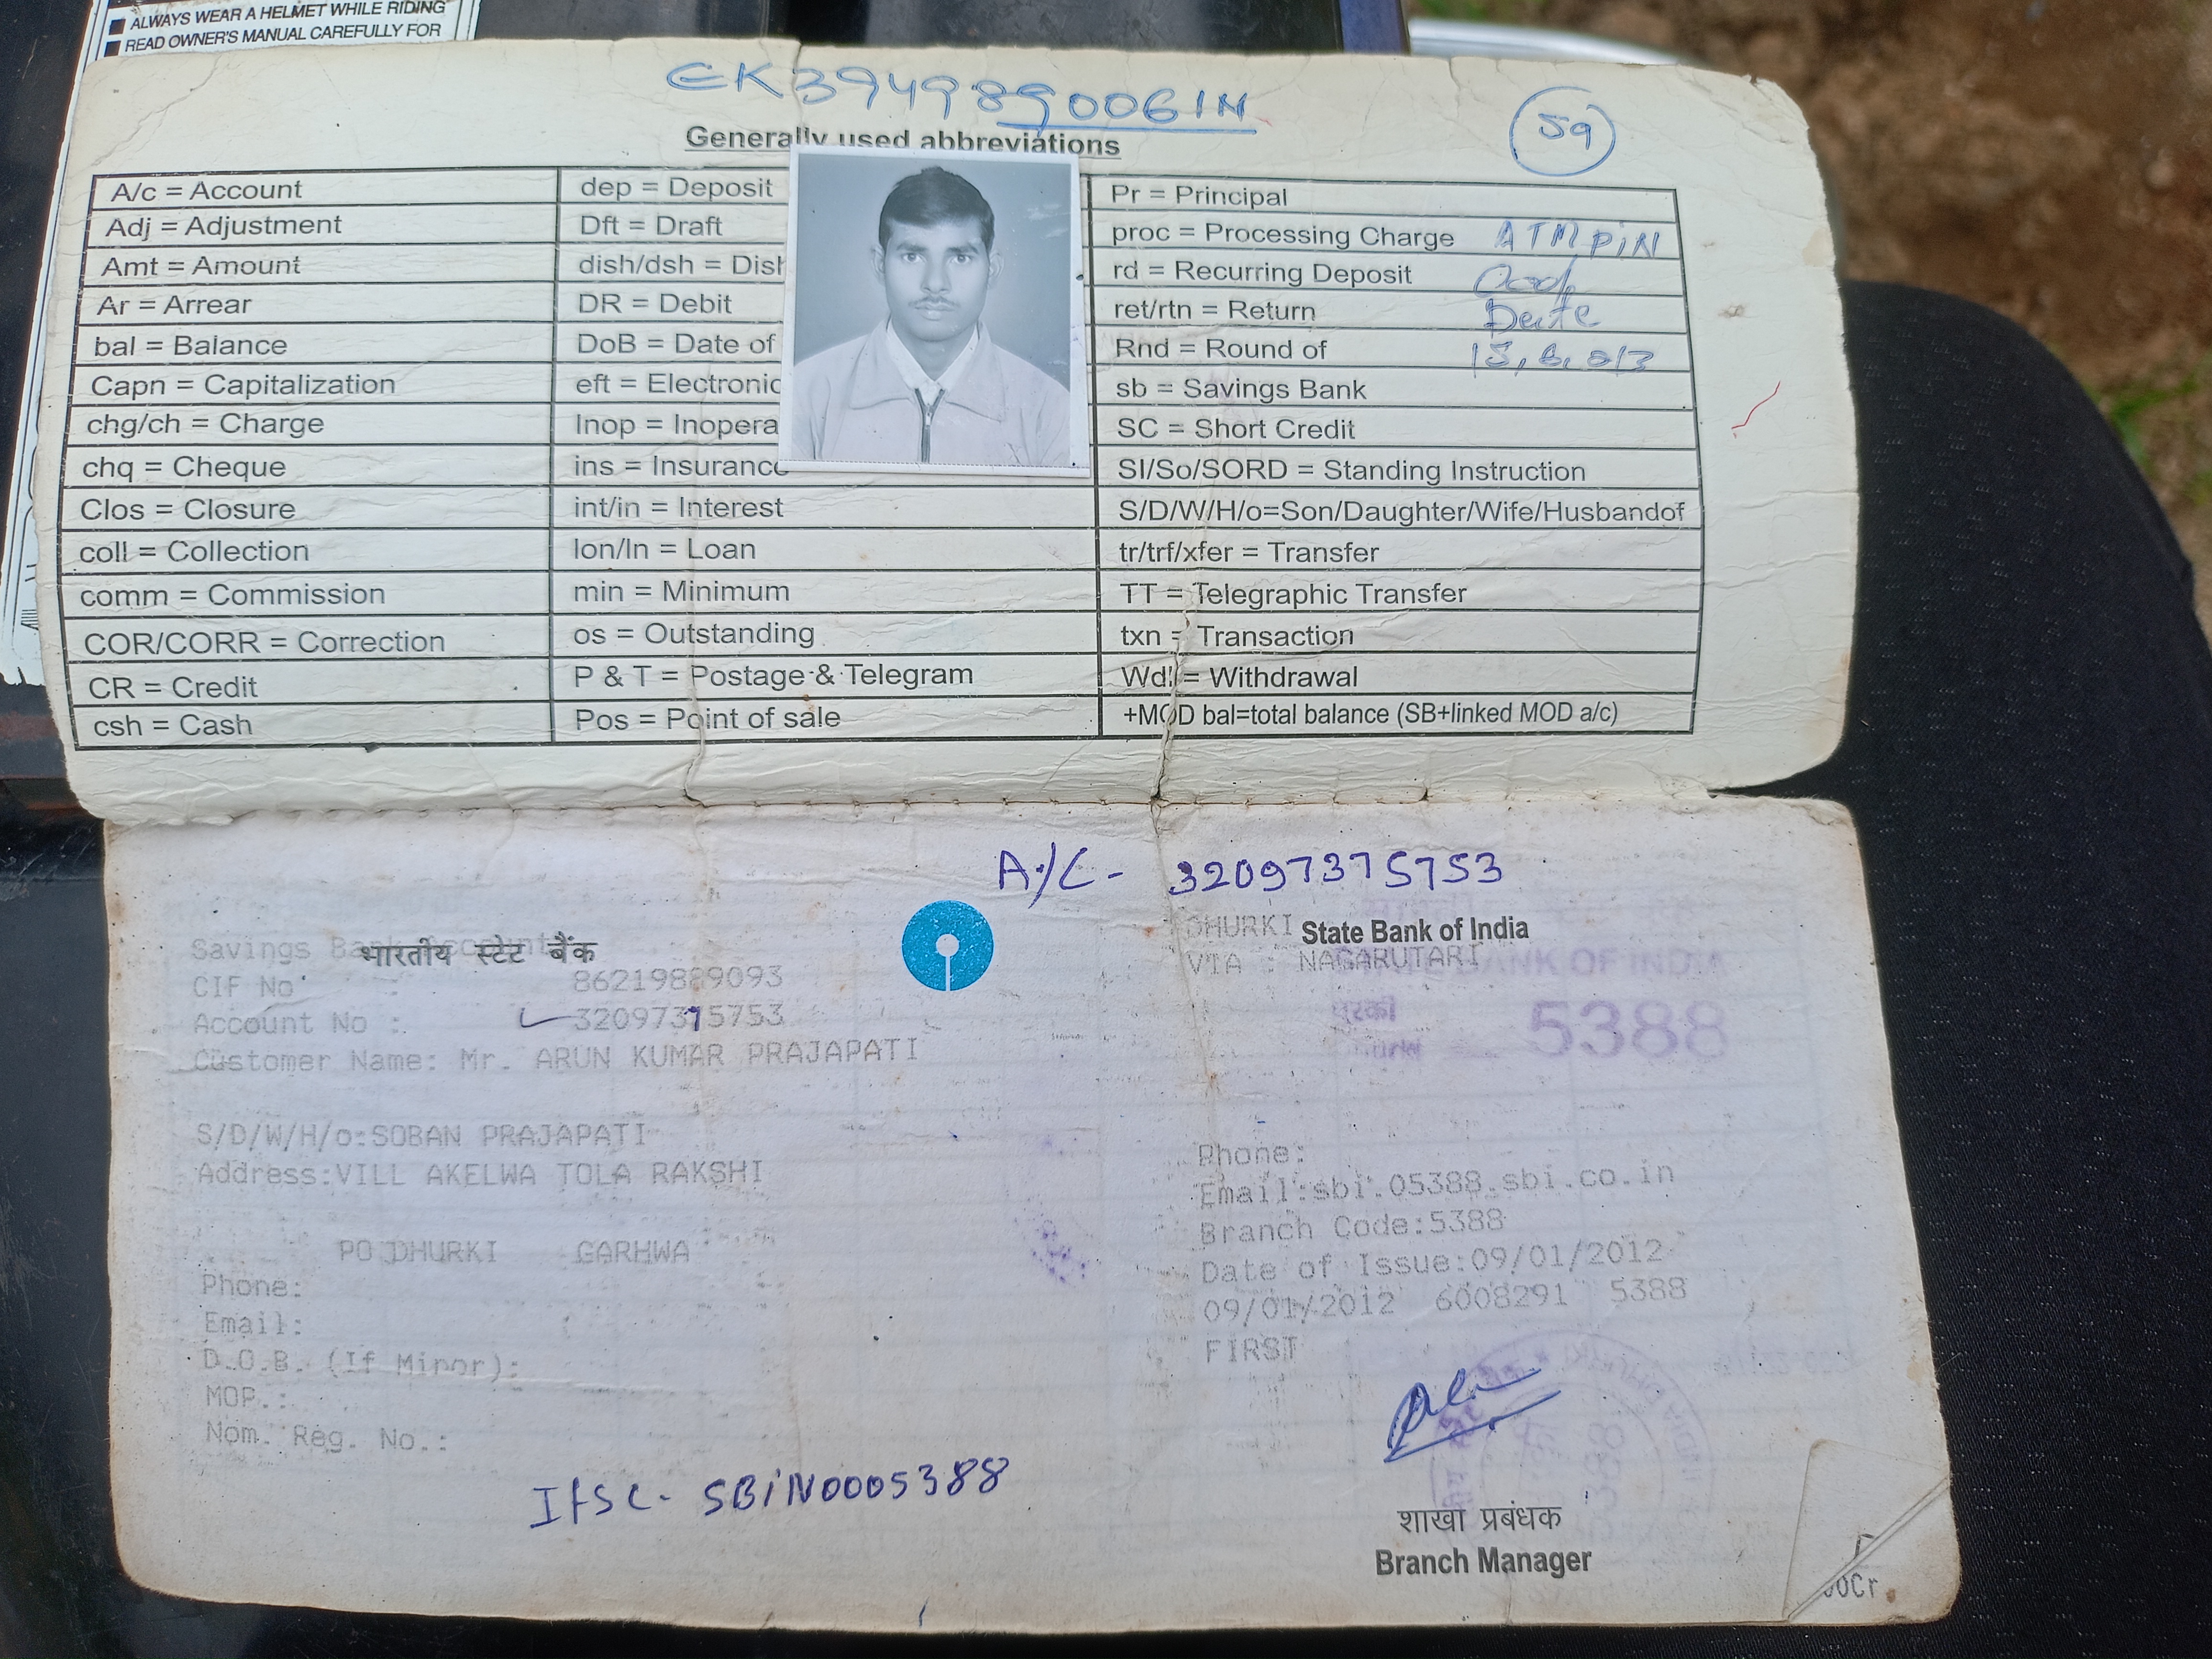 ALWAYS WEAR A HELMET WHILE RIDING
READ OWNER'S MANUAL CAREFULLY FOR
EK394989006IN
59
Generally used abbreviations
A/c = Account
dep = Deposit
Pr = Principal
Adj = Adjustment
Dft = Draft
proc = Processing Charge
ATM PiN
Amt = Amount
dish/dsh =
rd = Recurring Deposit
Ar = Arrear
DR = Debit
ret/rtn = Return
Date
bal = Balance
DoB = Date of
Rnd = Round of
Capn = Capitalization
eft = Electronic
sb = Savings Bank
chg/ch = Charge
Inop = Inopera
SC = Short Credit
chq = Cheque
ins = Insurance
SI/So/SORD = Standing Instruction
Clos = Closure
int/in = Interest
S/D/W/H/o=Son/Daughter/Wife/Husbandof
coll = Collection
lon/ln = Loan
tr/trf/xfer = Transfer
comm = Commission
min = Minimum
TT = Telegraphic Transfer
COR/CORR = Correction
os = Outstanding
txn = Transaction
CR = Credit
P & T = Postage & Telegram
Wdl = Withdrawal
csh = Cash
Pos = Point of sale
+MOD bal=total balance (SB+linked MOD a/c)
A/C- 32097375753
भारतीय स्टेट बैंक
State Bank of India
Savings Bank Account
DHURKI
VIA : NAGARUTARI
BANK OF INDIA
CIF No : 86219889093
Account No : 32097375753
5388
Customer Name: Mr. ARUN KUMAR PRAJAPATI
S/D/W/H/o:SOBAN PRAJAPATI
Address:VILL AKELWA TOLA RAKSHI
PO DHURKI GARHWA
Phone:
Email:
D.O.B. (If Minor):
MOP.:
Nom. Reg. No.:
Phone:
Email:sbi.05388.sbi.co.in
Branch Code:5388
Date of Issue:09/01/2012
09/01/2012 6008291 5388
FIRST
IFSC- SBiN0005388
शाखा प्रबंधक
Branch Manager
00Cr